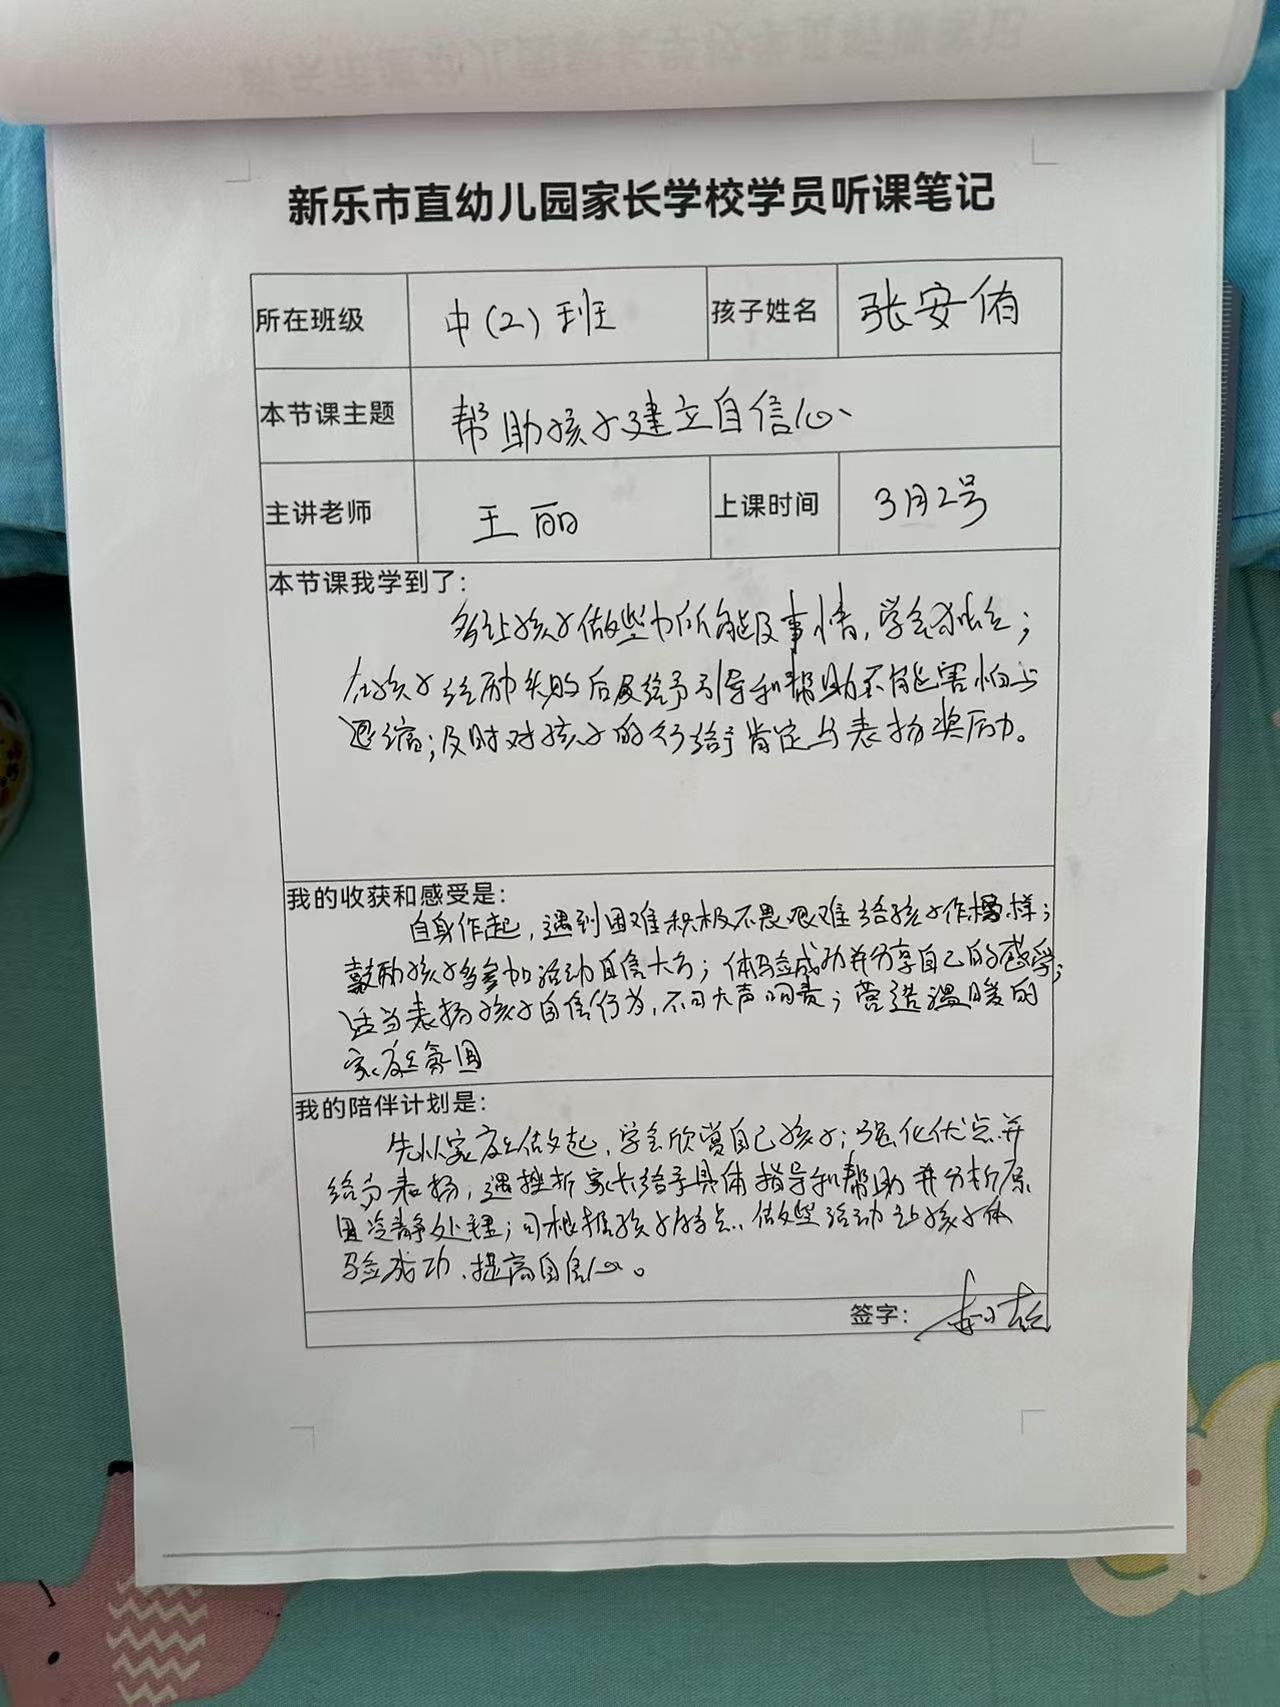 新乐市直幼儿园家长学校学员听课笔记
所在班级 中(2)班 孩子姓名 张安侑
本节课主题 帮助孩子建立自信心
主讲老师 王丽 上课时间 3月2号
本节课我学到了：
多让孩子做些力所能及事情，学会独立；
在孩子经历失败后及给予引导和帮助不能害怕与
退缩；及时对孩子的行给予肯定与表扬奖励。
我的收获和感受是：
自身作起，遇到困难积极不畏艰难给孩子作榜样；
鼓励孩子多参加活动自信大方；体验成功并分享自己的感受；
适当表扬孩子自信行为，不可大声呵责；营造温暖的
家庭氛围
我的陪伴计划是：
先从家庭做起，学会欣赏自己孩子；强化优点并
给予表扬，遇挫折家长给予具体指导和帮助并分析原
因冷静处理；可根据孩子特点、做些活动让孩子体
验成功、提高自信心。
签字：